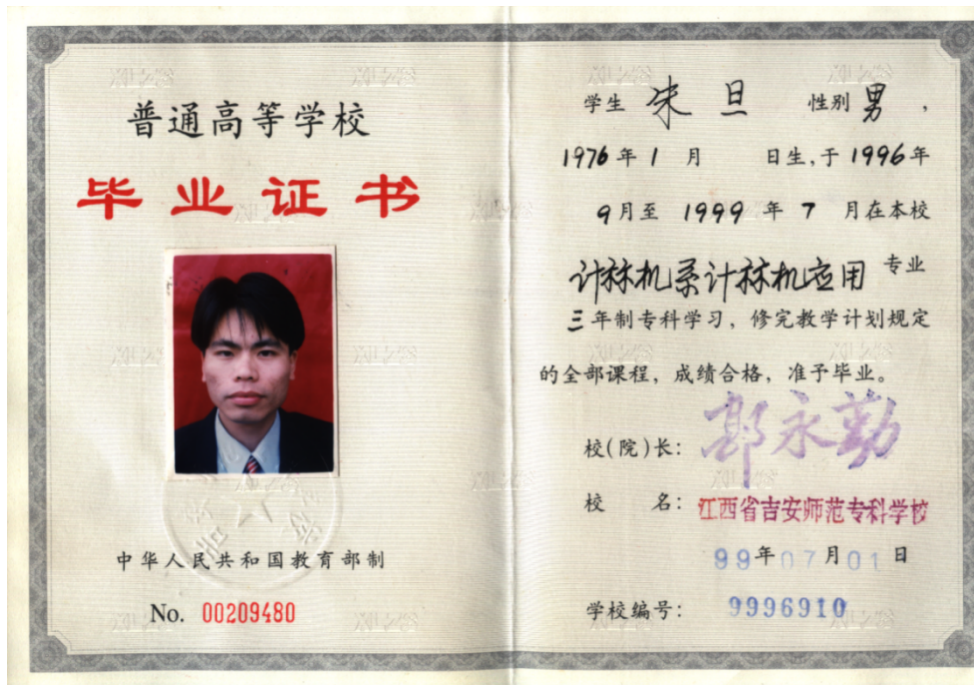 普通高等学校
毕业证书
中华人民共和国教育部制
No. 00209480
学生 朱旦 性别 男,
1976年1月 日生,于1996年
9月至1999年7月在本校
计标机系计标机应用 专业
三年制专科学习,修完教学计划规定
的全部课程,成绩合格,准予毕业。
校(院)长: 郭永勤
校 名: 江西省吉安师范专科学校
99年07月01日
学校编号: 9996910